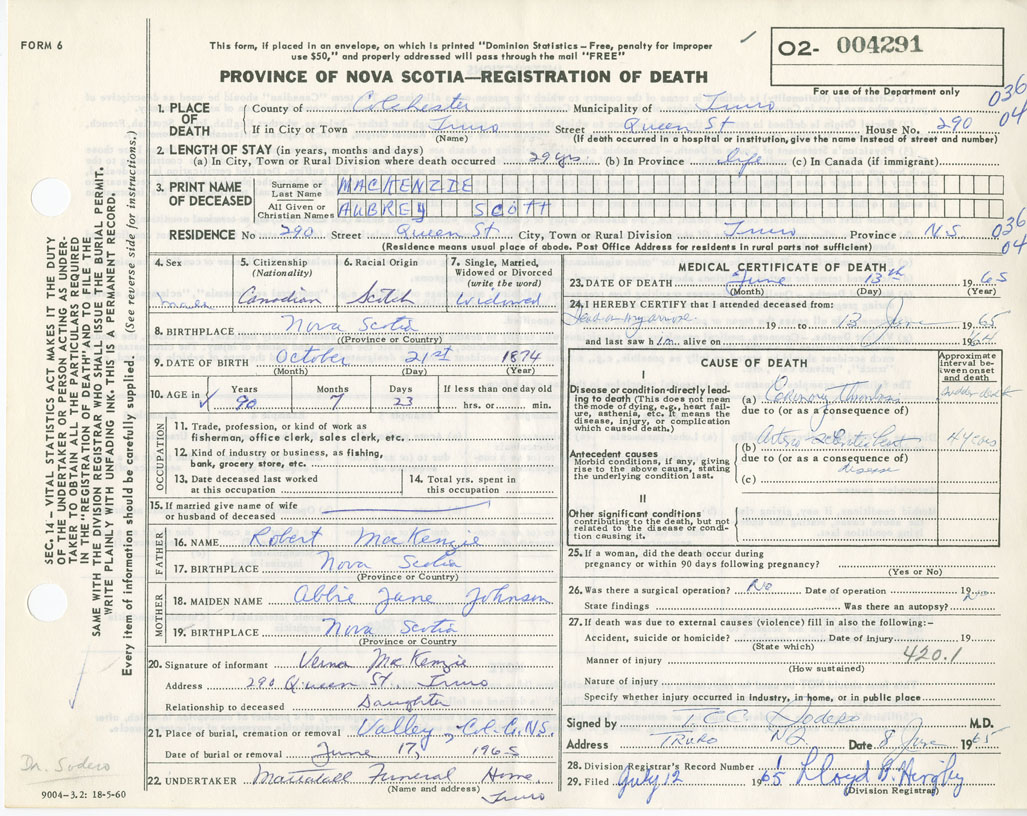 FORM 6
This form, if placed in an envelope, on which is printed "Dominion Statistics—Free, penalty for improper
use $50," and properly addressed will pass through the mail "FREE"
PROVINCE OF NOVA SCOTIA—REGISTRATION OF DEATH
O2- 004291
For use of the Department only
036
04
SEC. 14 – VITAL STATISTICS ACT MAKES IT THE DUTY
OF THE UNDERTAKER OR PERSON ACTING AS UNDER-
TAKER TO OBTAIN ALL THE PARTICULARS REQUIRED
IN THE "REGISTRATION OF DEATH" AND TO FILE THE
SAME WITH THE DIVISION REGISTRAR WHO SHALL ISSUE THE BURIAL PERMIT.
WRITE PLAINLY WITH UNFADING INK. THIS IS A PERMANENT RECORD.
Every item of information should be carefully supplied. (See reverse side for instructions.)
1. PLACE OF DEATH
County of Colchester Municipality of Truro
If in City or Town Truro Street Queen St House No. 290
(Name) (If death occurred in a hospital or institution, give the name instead of street and number)
2. LENGTH OF STAY (in years, months and days)
(a) In City, Town or Rural Division where death occurred 29 yrs. (b) In Province life (c) In Canada (if immigrant)
3. PRINT NAME OF DECEASED
Surname or Last Name MACKENZIE
All Given or Christian Names AUBREy SCOTT
RESIDENCE No 290 Street Queen St City, Town or Rural Division Truro Province N.S
036
04
(Residence means usual place of abode. Post Office Address for residents in rural parts not sufficient)
4. Sex
5. Citizenship (Nationality) Canadian
6. Racial Origin Scotch
7. Single, Married, Widowed or Divorced (write the word) Widowed
8. BIRTHPLACE Nova Scotia
(Province or Country)
9. DATE OF BIRTH October 21st 1874
(Month) (Day) (Year)
10. AGE in Years 90 Months 7 Days 23 If less than one day old hrs. or min.
OCCUPATION
11. Trade, profession, or kind of work as
fisherman, office clerk, sales clerk, etc.
12. Kind of industry or business, as fishing,
bank, grocery store, etc.
13. Date deceased last worked
at this occupation
14. Total yrs. spent in
this occupation
15. If married give name of wife
or husband of deceased
FATHER
16. NAME Robert MacKenzie
17. BIRTHPLACE Nova Scotia
(Province or Country)
MOTHER
18. MAIDEN NAME Abbie Jane Johnson
19. BIRTHPLACE Nova Scotia
(Province or Country)
20. Signature of informant Verna MacKenzie
Address 290 Queen St. Truro
Relationship to deceased Daughter
21. Place of burial, cremation or removal Valley, Col. C. N.S.
Date of burial or removal June 17, 1965
22. UNDERTAKER Mattatall Funeral Home
(Name and address)
Truro
Dr. Sodero
9004-3.2: 18-5-60
MEDICAL CERTIFICATE OF DEATH
23. DATE OF DEATH June 13th 1965
(Month) (Day) (Year)
24. I HEREBY CERTIFY that I attended deceased from:
Dead on my arrival 19 to 13 June 1965
and last saw him alive on 1964
CAUSE OF DEATH
Approximate interval between onset and death
I
Disease or condition directly lead-
ing to death (This does not mean
the mode of dying, e.g., heart fail-
ure, asthenia, etc. It means the
disease, injury, or complication
which caused death.)
(a) Coronary Thrombosis
due to (or as a consequence of)
Antecedent causes
Morbid conditions, if any, giving
rise to the above cause, stating
the underlying condition last.
(b) Arterio sclerotic heart
due to (or as a consequence of)
disease
(c)
II
Other significant conditions
contributing to the death, but not
related to the disease or condi-
tion causing it.
25. If a woman, did the death occur during
pregnancy or within 90 days following pregnancy?
(Yes or No)
26. Was there a surgical operation? No Date of operation 19
State findings Was there an autopsy? no
27. If death was due to external causes (violence) fill in also the following:–
Accident, suicide or homicide? Date of injury 19
(State which)
Manner of injury 420.1
(How sustained)
Nature of injury
Specify whether injury occurred in industry, in home, or in public place
Signed by T.C.C. Sodero M.D.
Address TRURO NS Date 8 June 1965
28. Division Registrar's Record Number
29. Filed July 12 1965
(Division Registrar)